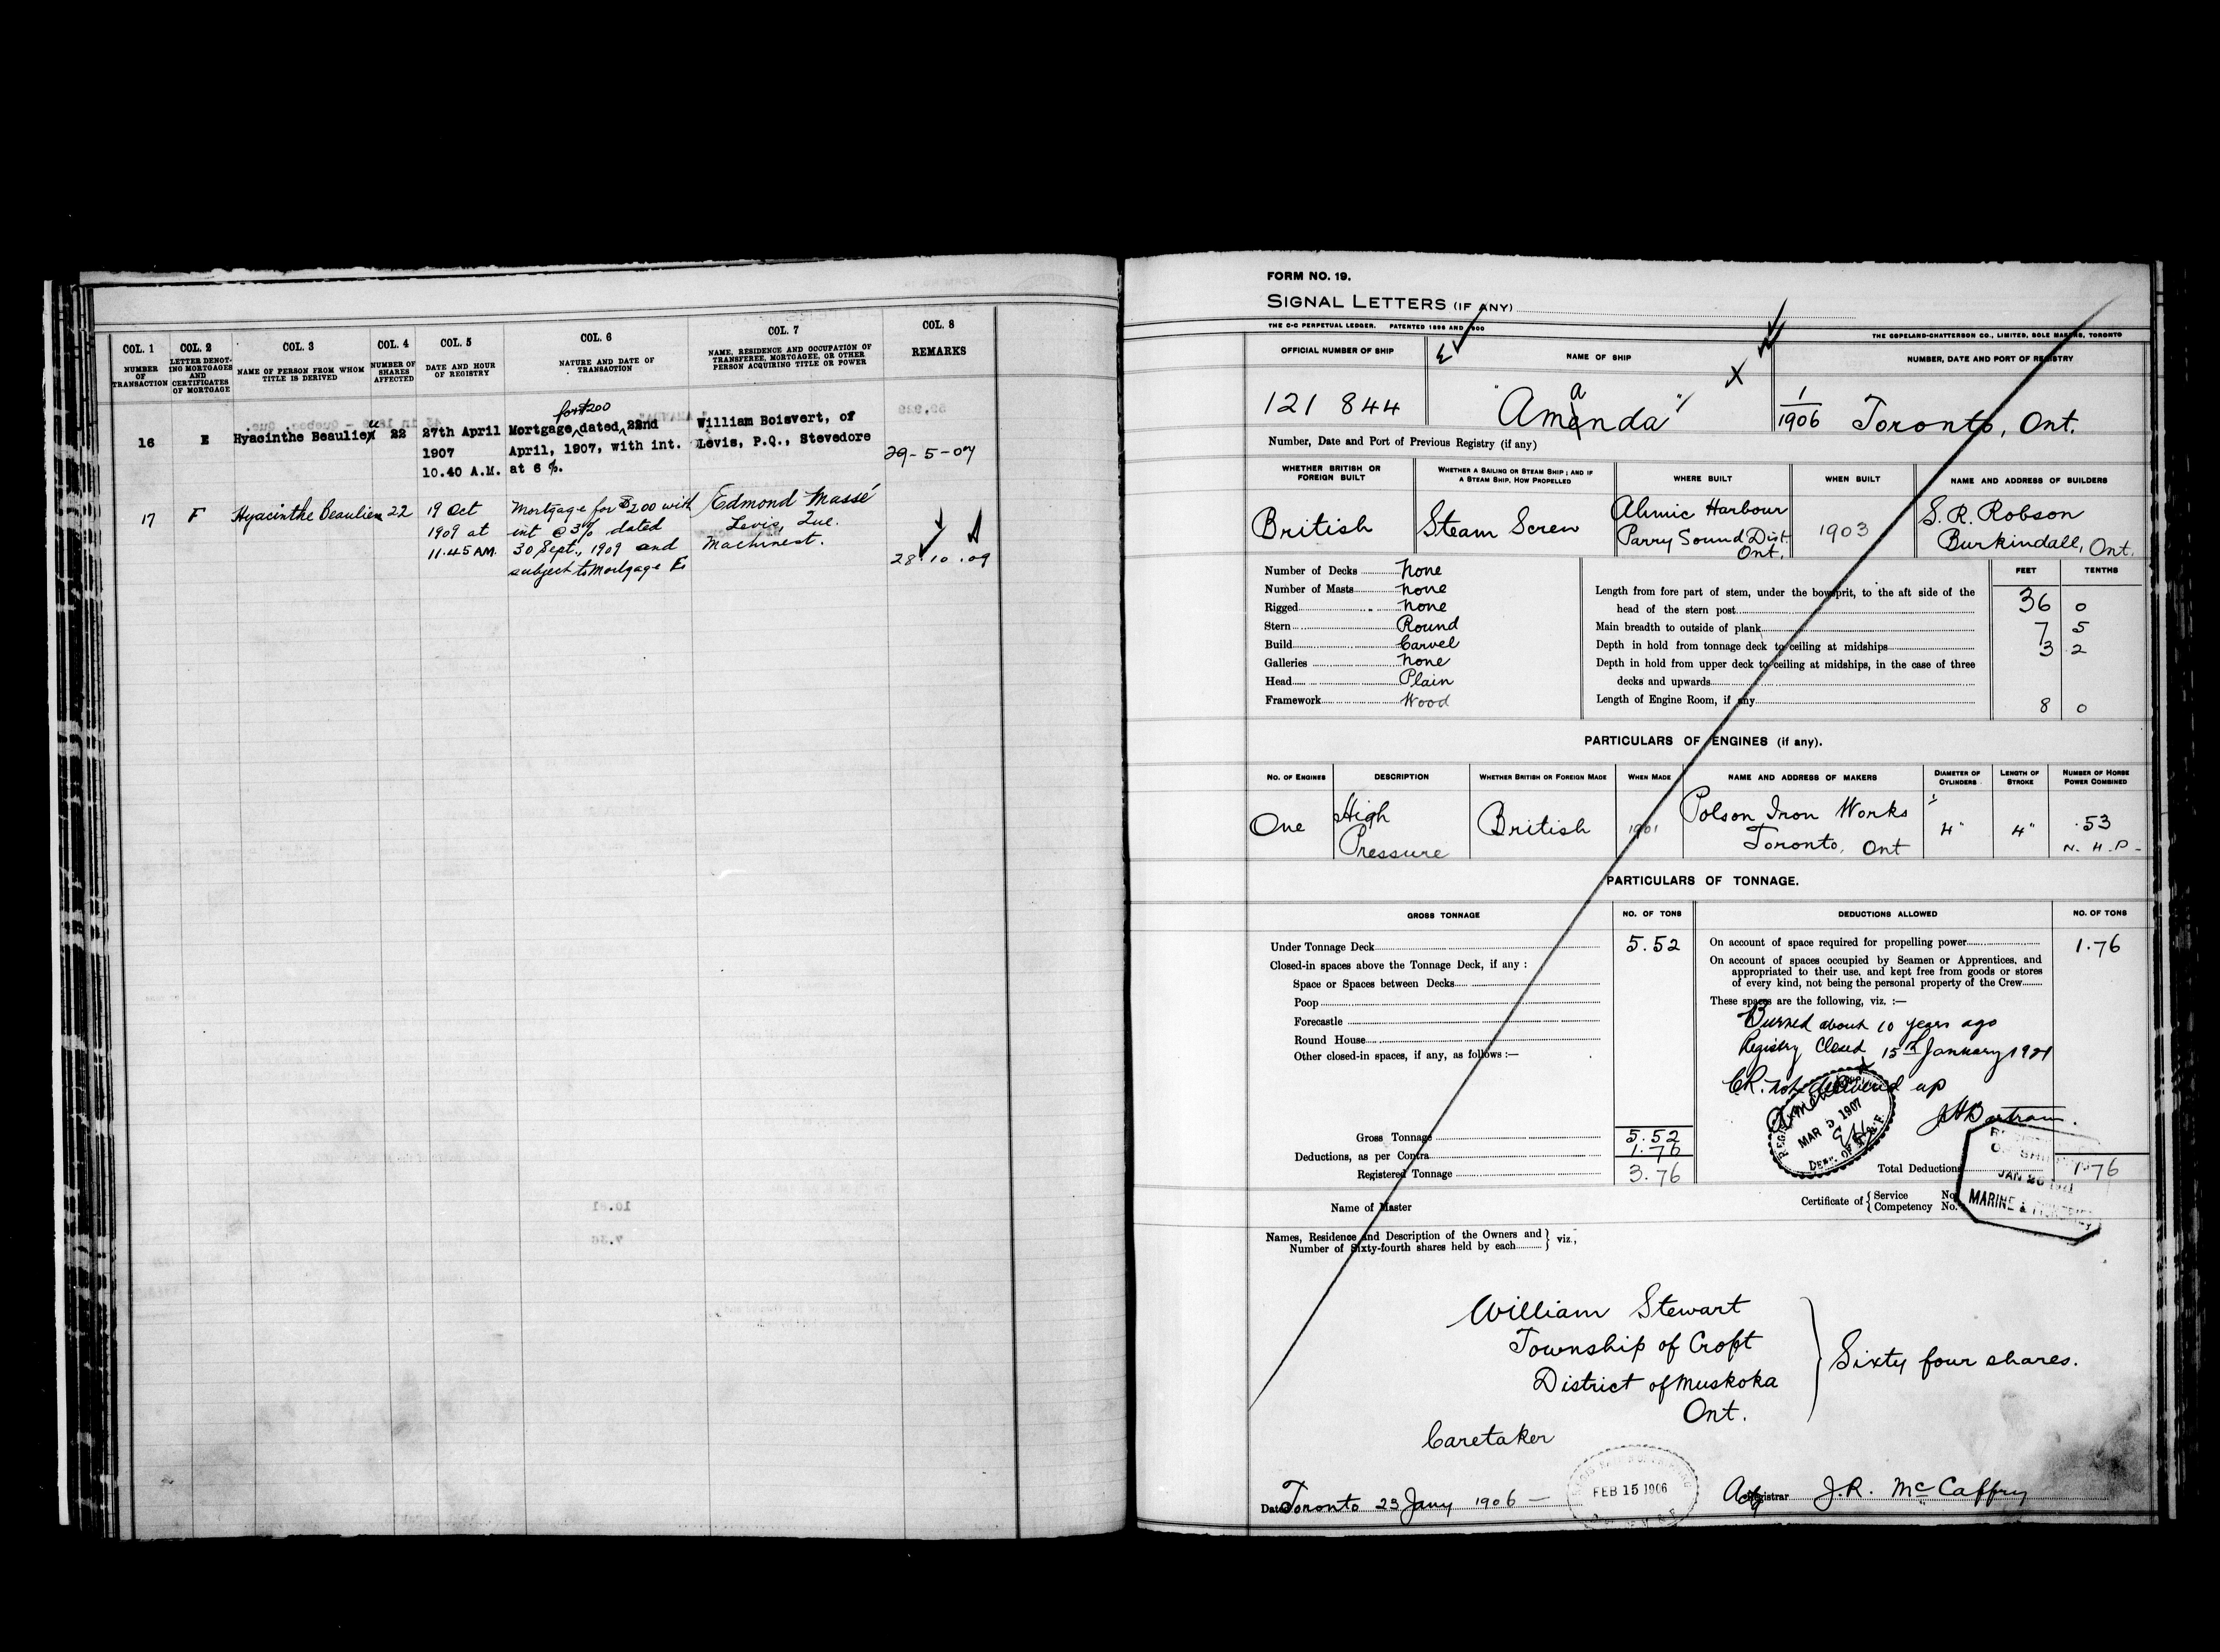 COL. 1 COL. 2 COL. 3 COL. 4 COL. 5 COL. 6 COL. 7 COL. 8
NUMBER OF TRANSACTION
LETTER DENOTING MORTGAGES AND CERTIFICATES OF MORTGAGE
NAME OF PERSON FROM WHOM TITLE IS DERIVED
NUMBER OF SHARES AFFECTED
DATE AND HOUR OF REGISTRY
NATURE AND DATE OF TRANSACTION
NAME, RESIDENCE AND OCCUPATION OF TRANSFEREE, MORTGAGEE, OR OTHER PERSON ACQUIRING TITLE OR POWER
REMARKS
for $200
16 E Hyacinthe Beaulieu 22 27th April Mortgage dated 22nd William Boisvert, of
1907 April, 1907, with int. Levis, P.Q., Stevedore
10.40 A.M. at 6 %. 29-5-07
17 F Hyacinthe Beaulieu 22 19 Oct Mortgage for $200 with Edmond Massé
1909 at int @ 3% dated Levis, Que.
11.45 AM. 30 Sept., 1909 and Machinest.
subject to Mortgage E. 28.10.09
FORM NO. 19.
SIGNAL LETTERS (IF ANY)
THE C-C PERPETUAL LEDGER. PATENTED 1896 AND 1900
THE COPELAND-CHATTERSON CO., LIMITED, SOLE MAKERS, TORONTO
OFFICIAL NUMBER OF SHIP NAME OF SHIP NUMBER, DATE AND PORT OF REGISTRY
121 844 "Amanda" 1/1906 Toronto, Ont.
Number, Date and Port of Previous Registry (if any)
WHETHER BRITISH OR FOREIGN BUILT
WHETHER A SAILING OR STEAM SHIP; AND IF A STEAM SHIP, HOW PROPELLED
WHERE BUILT
WHEN BUILT
NAME AND ADDRESS OF BUILDERS
British Steam Screw Ahmic Harbour 1903 S. R. Robson
Parry Sound Dist. Burkindall, Ont.
Ont.
Number of Decks None
Number of Masts None
Rigged None
Stern Round
Build Carvel
Galleries None
Head Plain
Framework Wood
FEET TENTHS
Length from fore part of stem, under the bowsprit, to the aft side of the
head of the stern post 36 0
Main breadth to outside of plank 7 5
Depth in hold from tonnage deck to ceiling at midships 3 2
Depth in hold from upper deck to ceiling at midships, in the case of three
decks and upwards
Length of Engine Room, if any 8 0
PARTICULARS OF ENGINES (if any).
NO. OF ENGINES DESCRIPTION WHETHER BRITISH OR FOREIGN MADE WHEN MADE NAME AND ADDRESS OF MAKERS DIAMETER OF CYLINDERS LENGTH OF STROKE NUMBER OF HORSE POWER COMBINED
One High British 1901 Polson Iron Works 4" 4" .53
Pressure Toronto, Ont N.H.P.
PARTICULARS OF TONNAGE.
GROSS TONNAGE NO. OF TONS DEDUCTIONS ALLOWED NO. OF TONS
Under Tonnage Deck 5.52
Closed-in spaces above the Tonnage Deck, if any :
Space or Spaces between Decks
Poop
Forecastle
Round House
Other closed-in spaces, if any, as follows :—
Gross Tonnage 5.52
Deductions, as per Contra 1.76
Registered Tonnage 3.76
On account of space required for propelling power 1.76
On account of spaces occupied by Seamen or Apprentices, and
appropriated to their use, and kept free from goods or stores
of every kind, not being the personal property of the Crew
These spaces are the following, viz. :—
Burned about 10 years ago
Registry Closed 15th January 1921
C.R. not delivered up
J H Bertram.
MAR 5 1907
DEPT. OF M. & F.
Total Deductions 1.76
JAN 26 1921
MARINE &
Name of Master
Certificate of { Service No.
Competency No.
Names, Residence and Description of the Owners and
Number of Sixty-fourth shares held by each } viz.,
William Stewart
Township of Croft
District of Muskoka
Ont.
Sixty four shares.
Caretaker
Date Toronto 23 Jany 1906 —
FEB 15 1906
Actg Registrar J.R. McCaffry